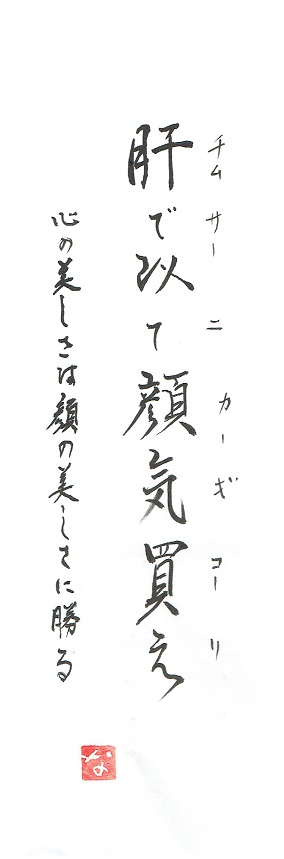 チムサーニカーギコーリ
肝で以て顔気買え
心の美しさは顔の美しさに勝る
な